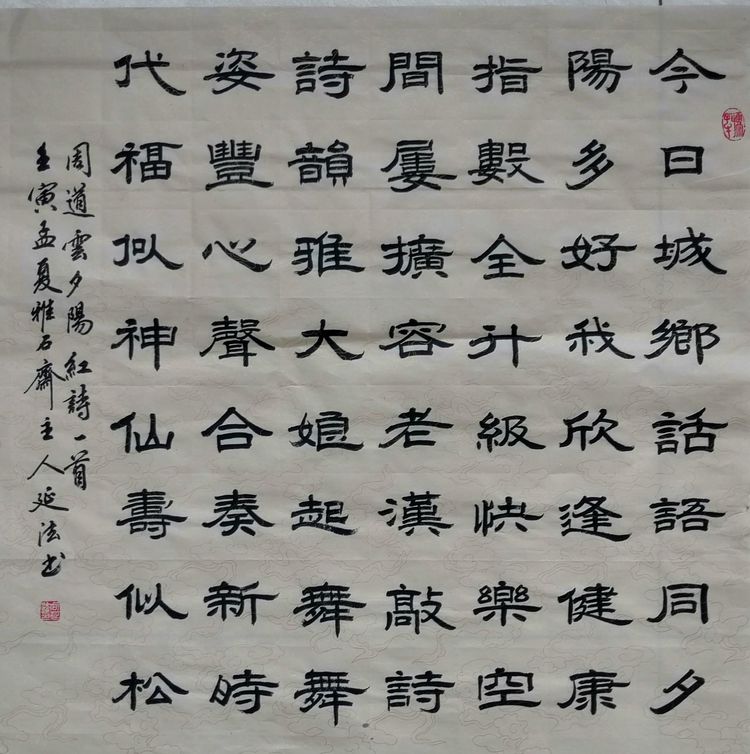 今日城鄉話語同夕
陽多好我欣逢健康
指數全升級快樂空
間屢擴容老漢敲詩
詩韻雅大娘起舞舞
姿豐心聲合奏新時
代福似神仙壽似松
周道雲夕陽紅詩一首
壬寅孟夏雅石齋主人延法书